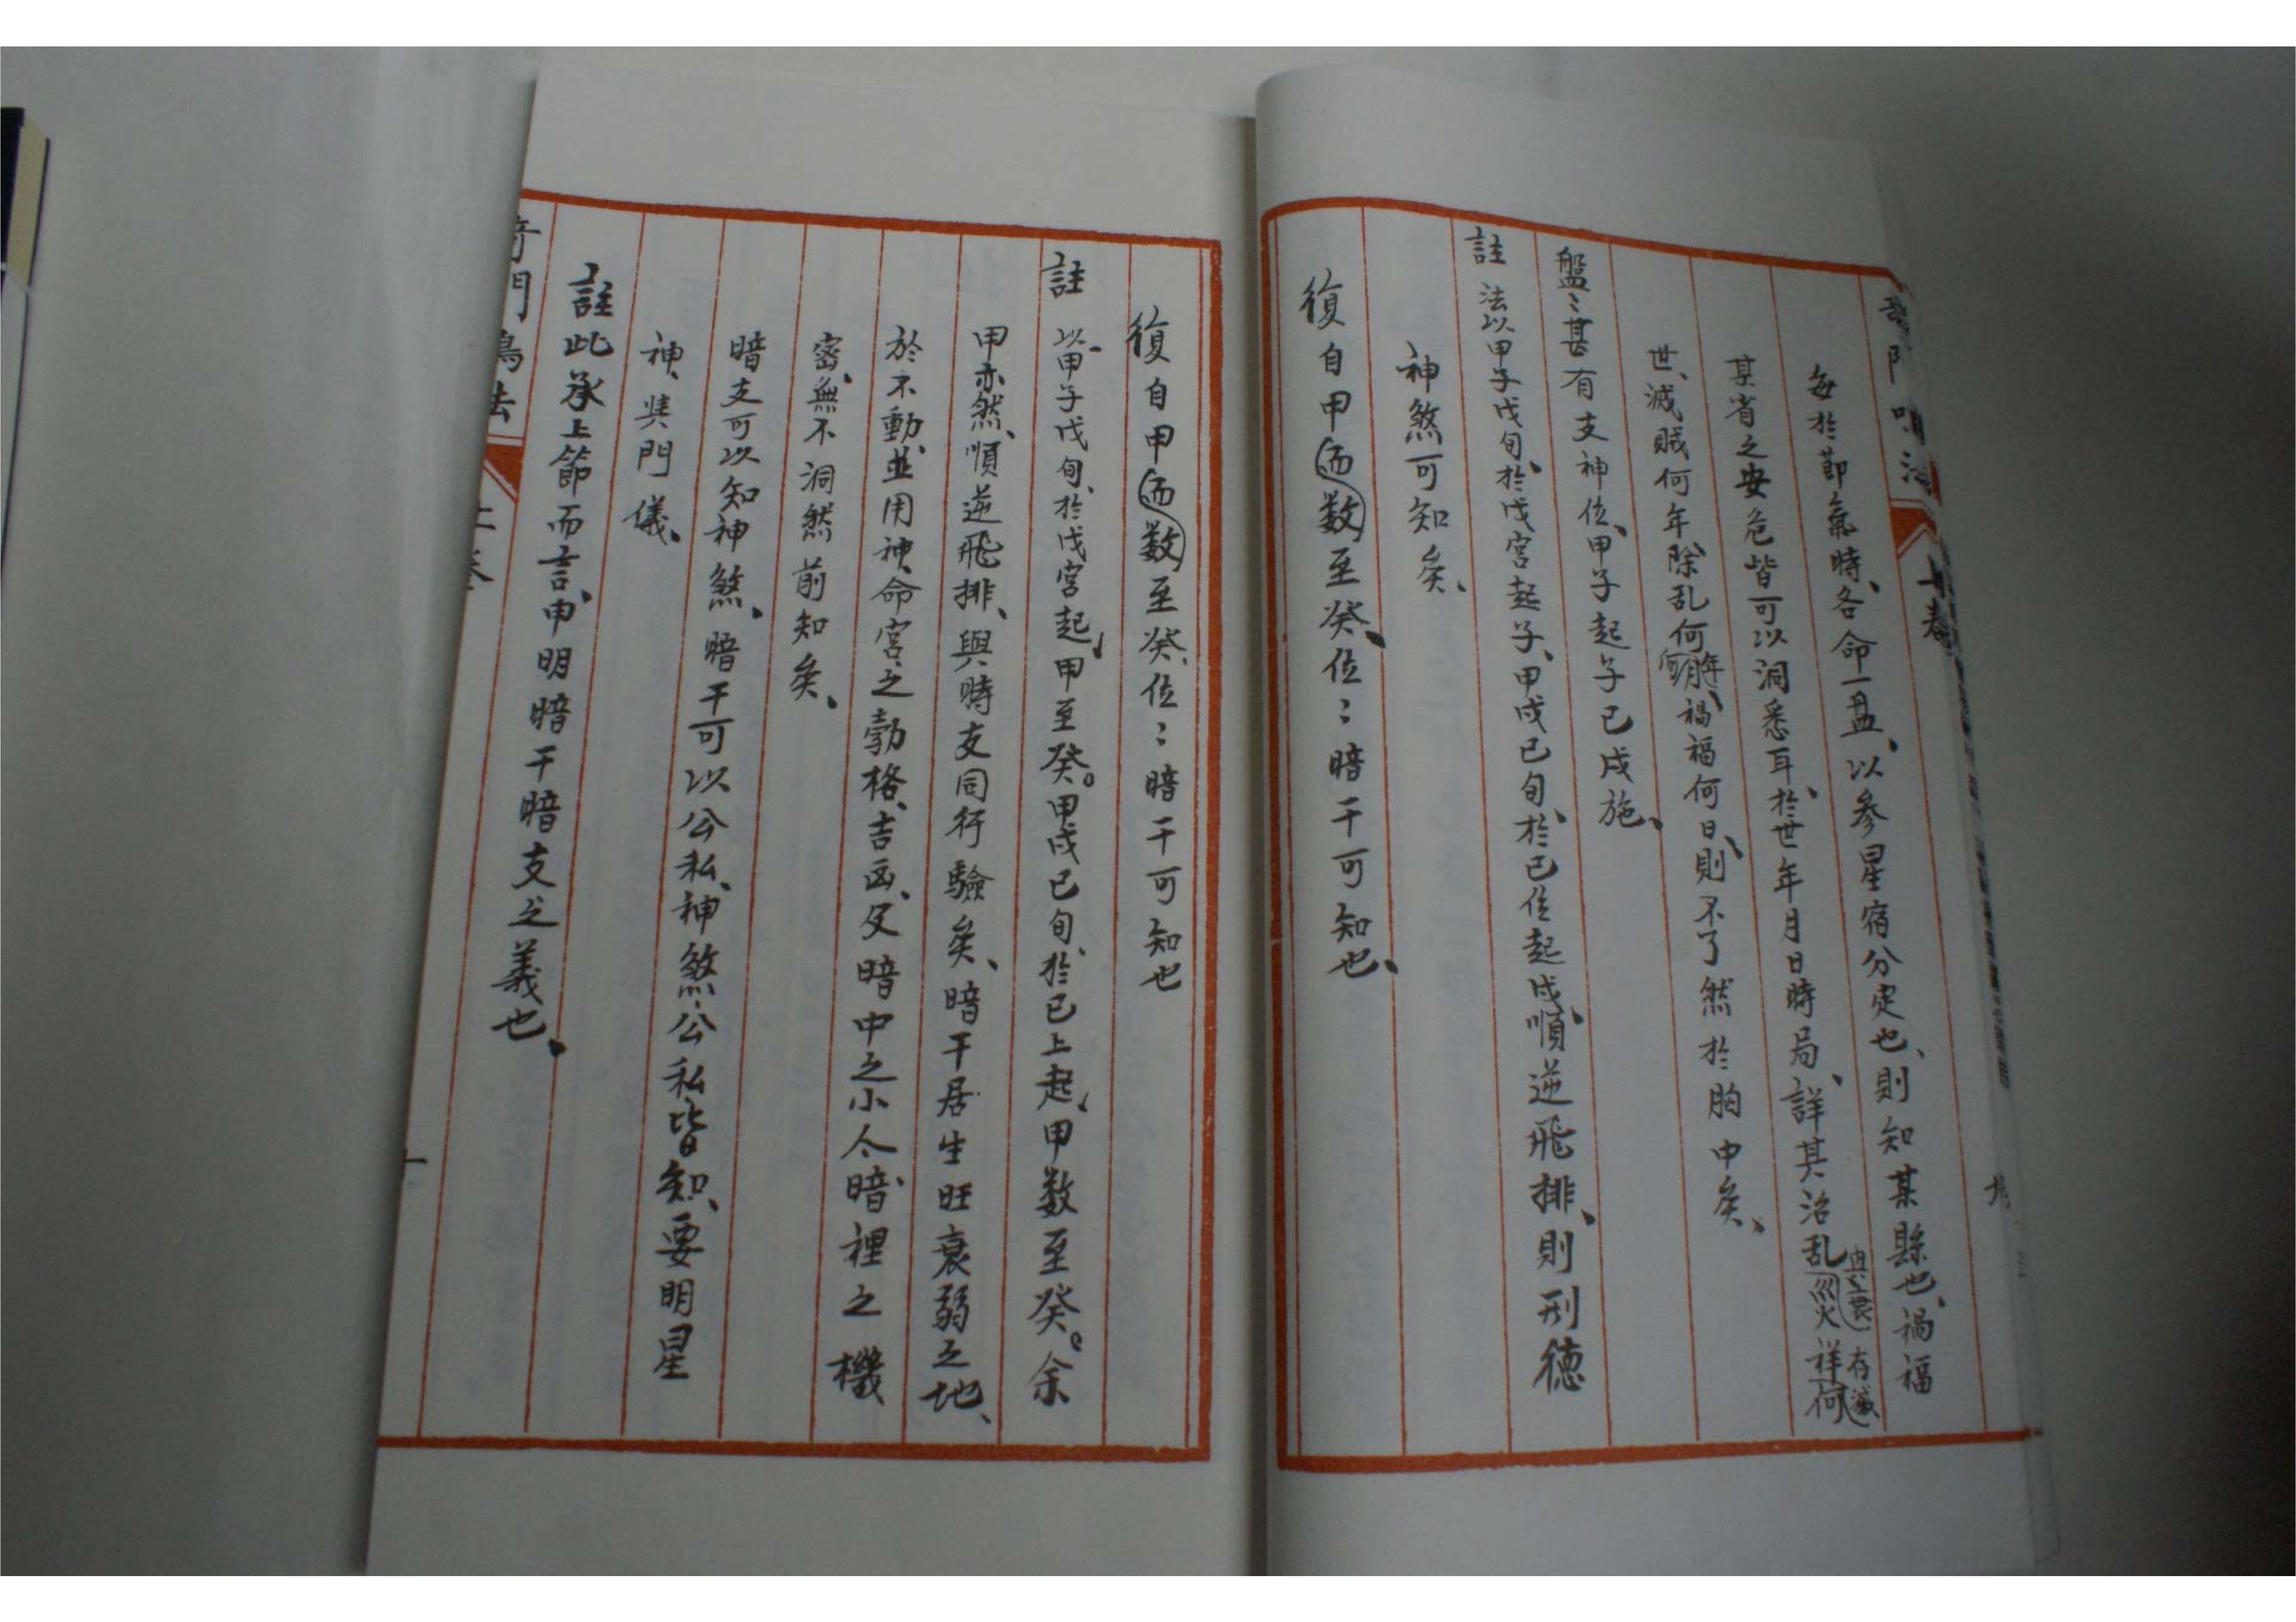 每於節氣時、各命一盘、以参星宿分定也、則知某縣也、禍福
某省之安危皆可以洞悉耳、於世年月日時局、詳其治乱災祥何
存滅
世、滅賊何年、除乱何年、何月、禍福何日、則不了然於胸中矣、
盤〻甚有支神位、甲子起子已戌施、
註 法以甲子戊旬、於戊宮起子、甲戌已旬、於已位起戌、順逆飛排、則刑德
神煞可知矣、
復自甲而数至癸、位〻暗干可知也、
復自甲而数至癸、位〻暗干可知也
註 以甲子戊旬、於戊宮起、甲至癸。甲戌已旬、於已上起、甲数至癸。余
甲亦然、順逆飛排、與時支同行驗矣、暗干居生旺衰弱之地、
於不動、並用神、命宮之勃格、吉凶、及暗中之小人、暗裡之機
密、無不洞然前知矣、
暗支可以知神煞、暗干可以公私、神煞、公私皆知、要明星
神、奘門儀、
註 此承上節而言、申明暗干暗支之義也、
上卷